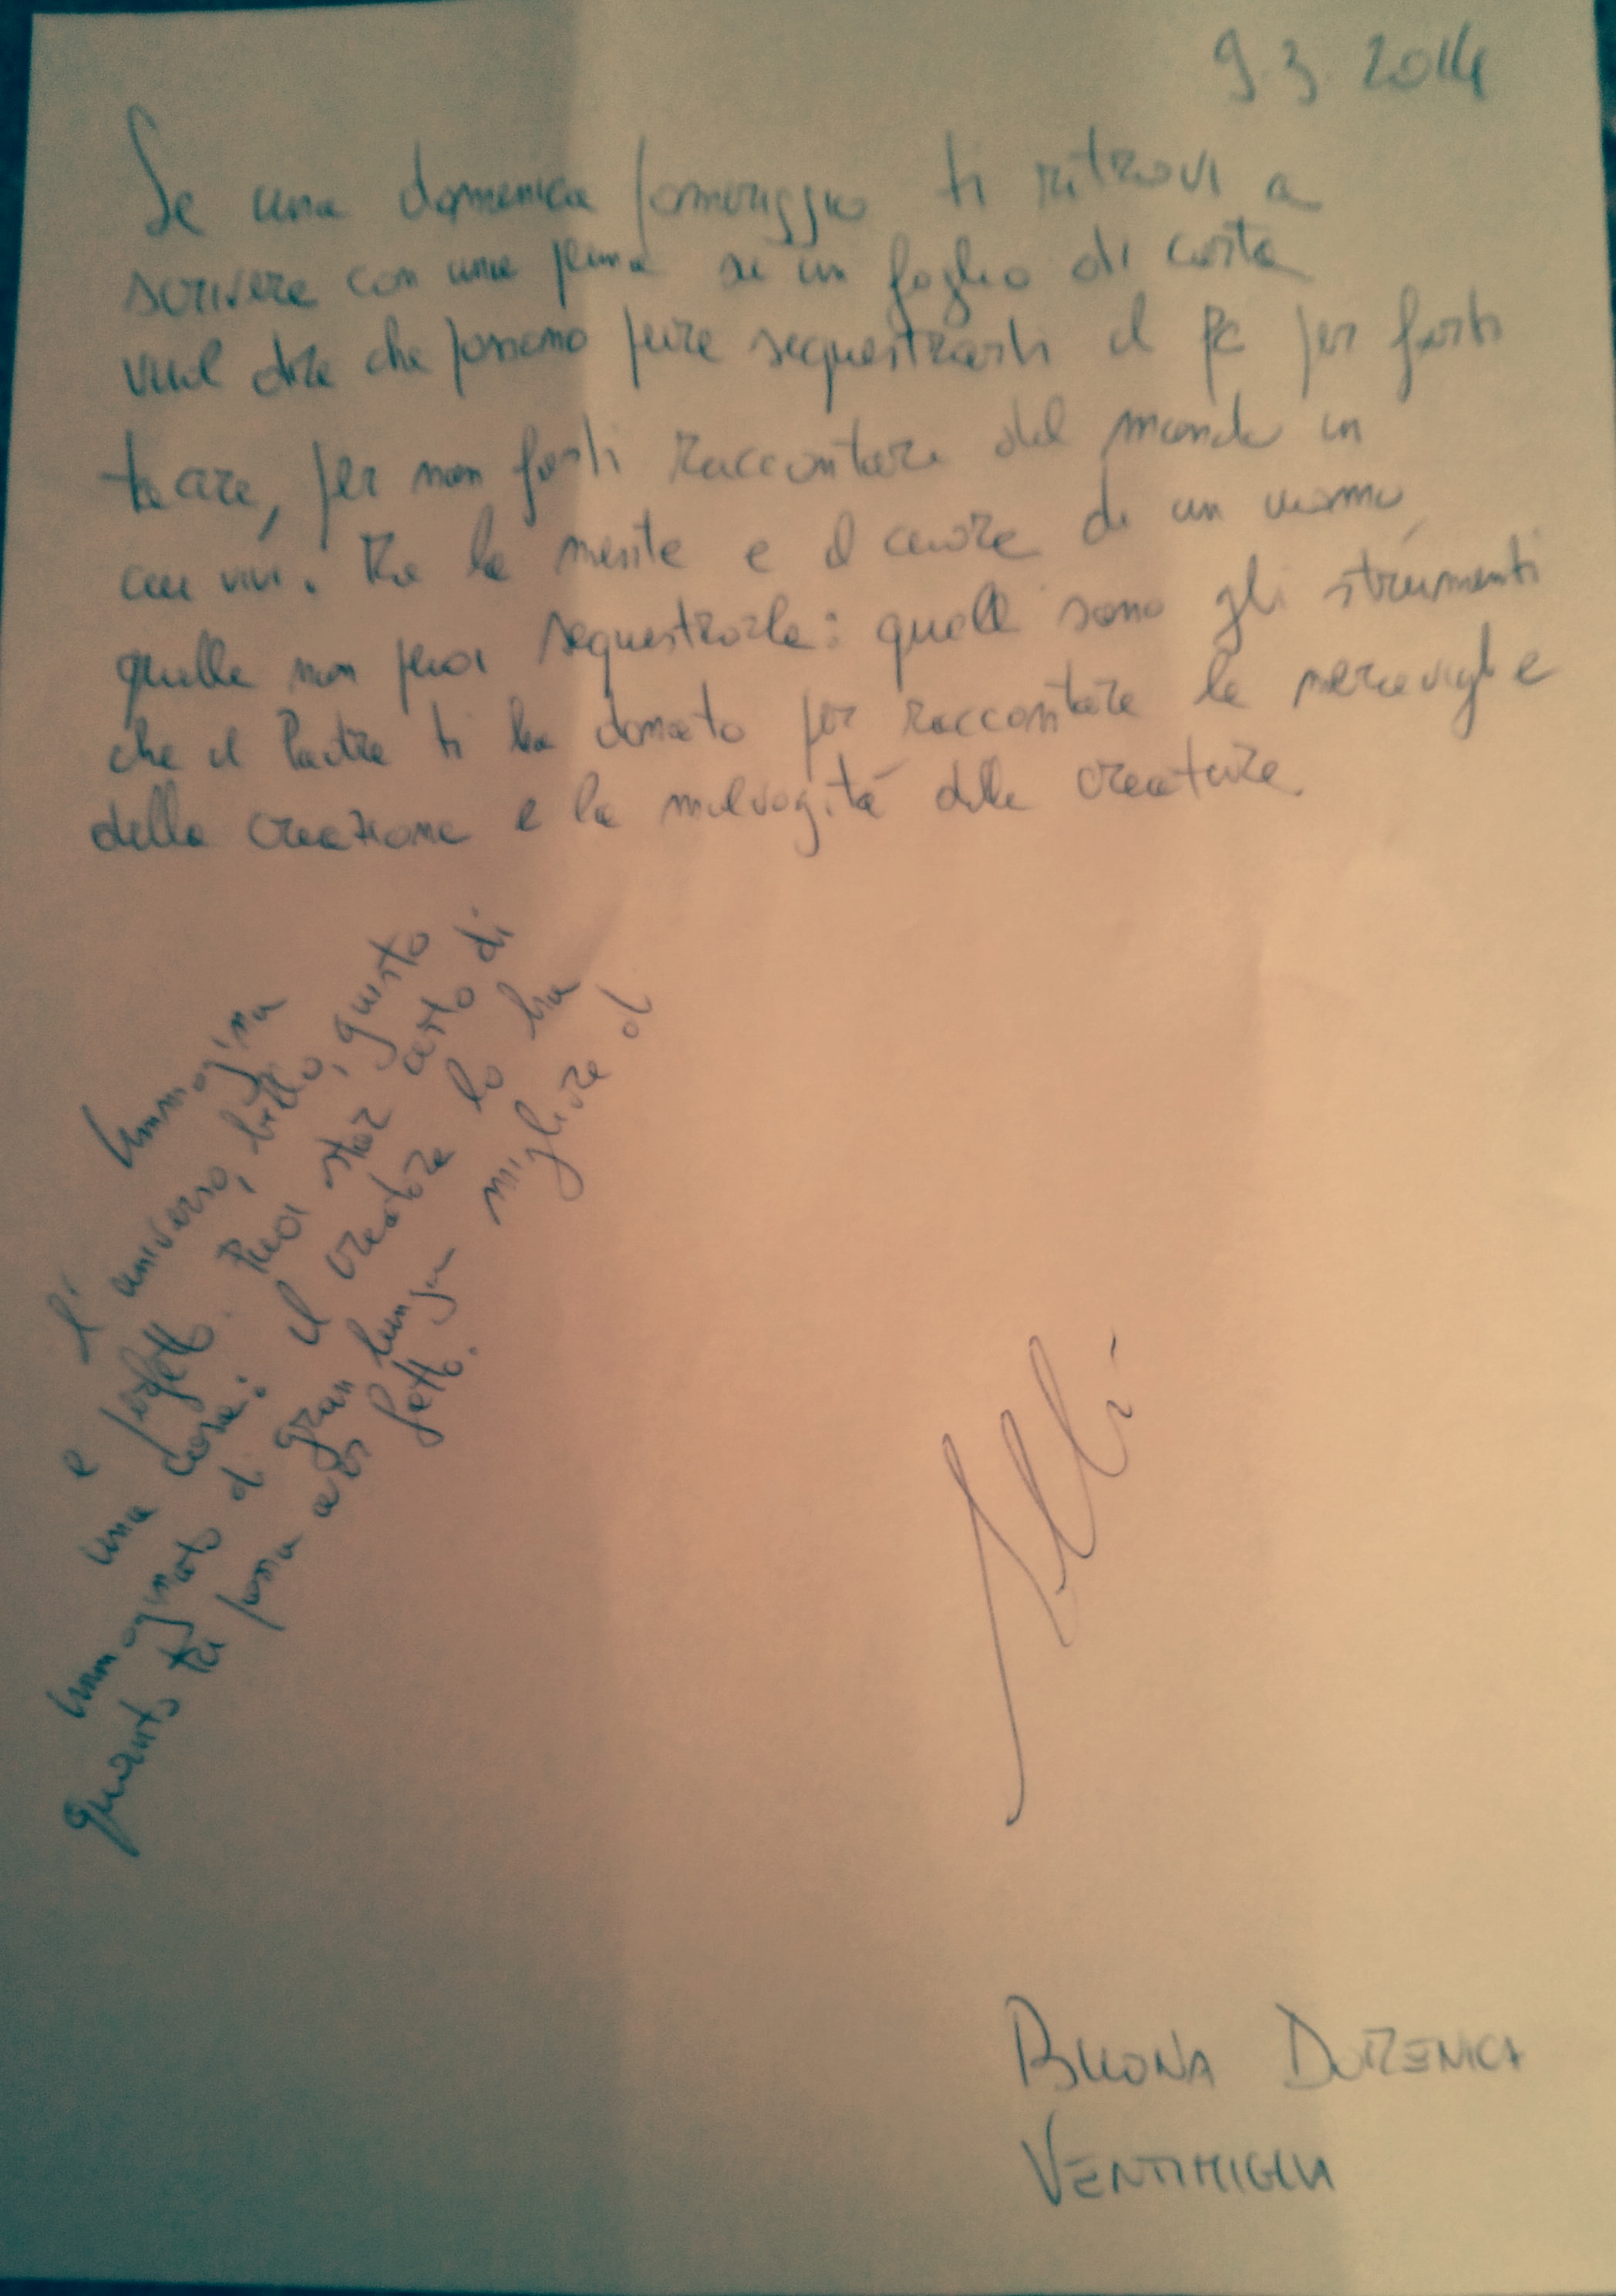 9.3.2014
Se una domenica pomeriggio ti ritrovi a
scrivere con una penna su un foglio di carta
vuol dire che possono pure sequestrarti il PC per farti
tacere, per non farti raccontare del mondo in
cui vivi. Ma la mente e il cuore di un uomo,
quelle non puoi sequestrarle: quelli sono gli strumenti
che il Padre ti ha donato per raccontare le meraviglie
della creazione e la malvagità delle creature.
Immagina
l'universo, bello, giusto
e perfetto. Puoi star certo di
una cosa: il creatore lo ha
immaginato di gran lunga migliore di
quanto tu possa aver fatto.
BUONA DOMENICA
VENTIMIGLIA